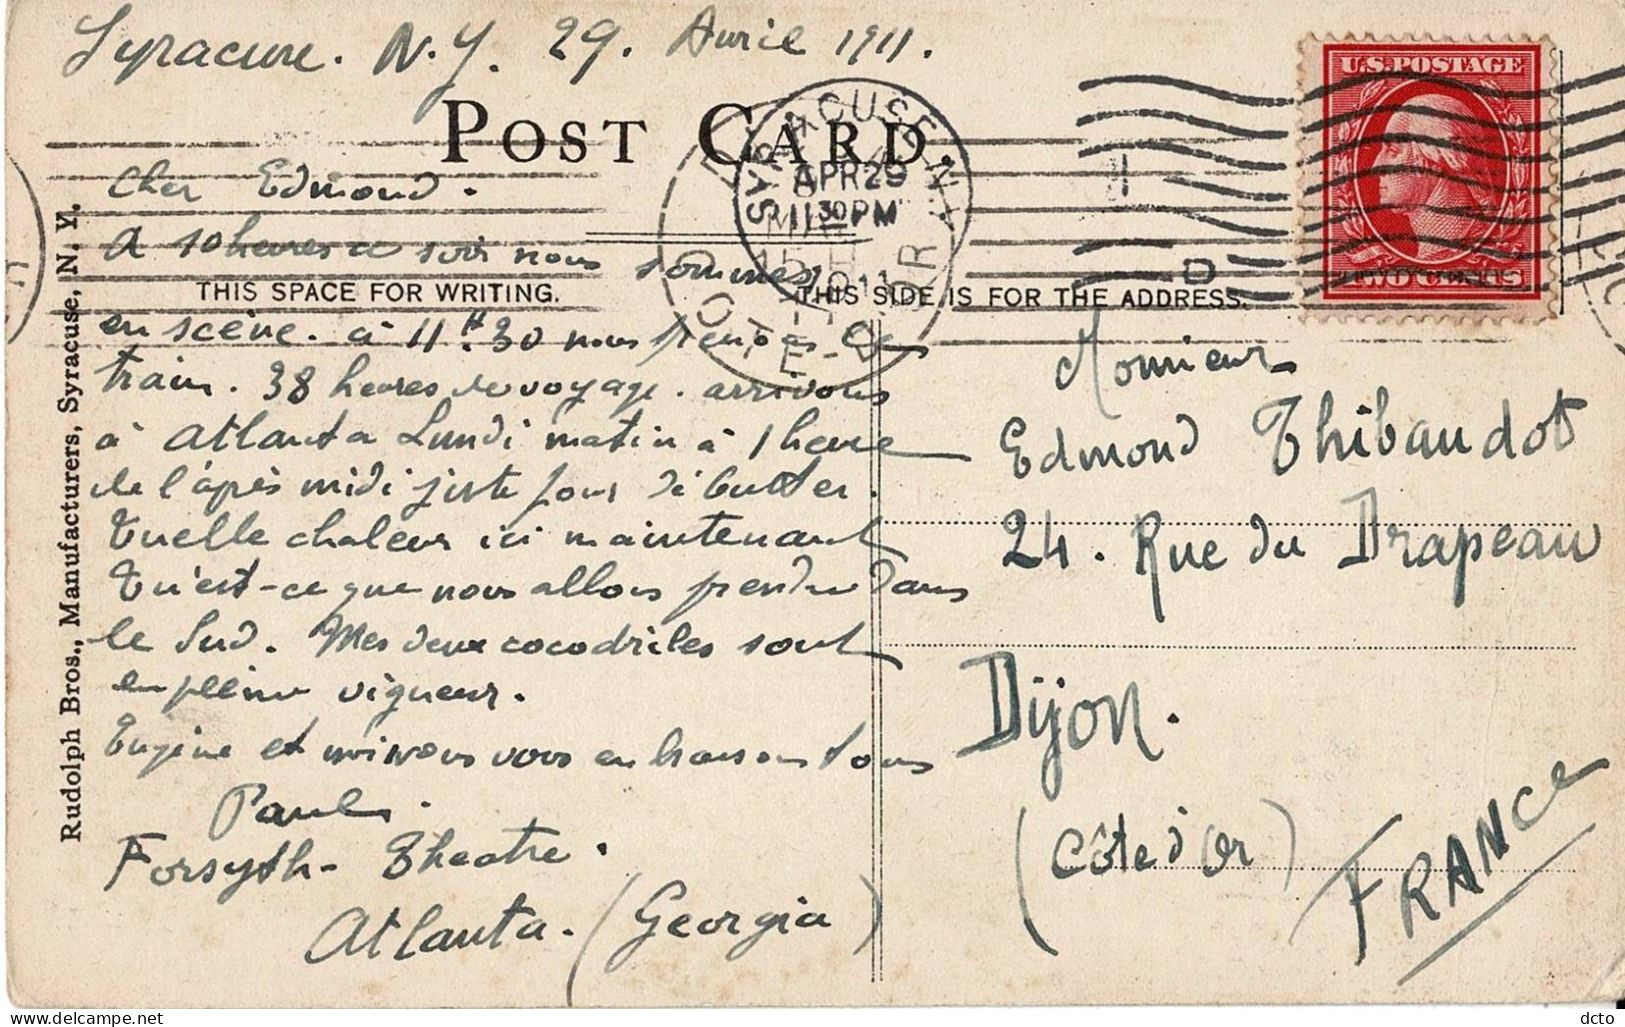 Syracuse. N.Y. 29. Avril 1911.
POST CARD.
SYRACUSE N.Y.
APR 29
11 30 PM
U.S. POSTAGE
TWO CENTS
Cher Edmond.
A 10 heures ce soir nous sommes
THIS SPACE FOR WRITING.
THIS SIDE IS FOR THE ADDRESS.
en scène. à 11H.30 nous prenons le
train. 38 heures de voyage. arrivons
à Atlanta Lundi matin à 1 heure
de l'après midi juste pour débutter.
Quelle chaleur ici maintenant
Qu'est-ce que nous allons prendre dans
le Sud. Mes deux cocodriles sont
en pleine vigueur.
Eugène et moi nous vous embrassons tous
Paul
Forsyth-Theatre.
Atlanta. (Georgia)
Monsieur
Edmond Thibaudot
24. Rue du Drapeau
Dijon.
(Côte d'Or)
FRANCE
Rudolph Bros., Manufacturers, Syracuse, N. Y.
delcampe.net
dcto